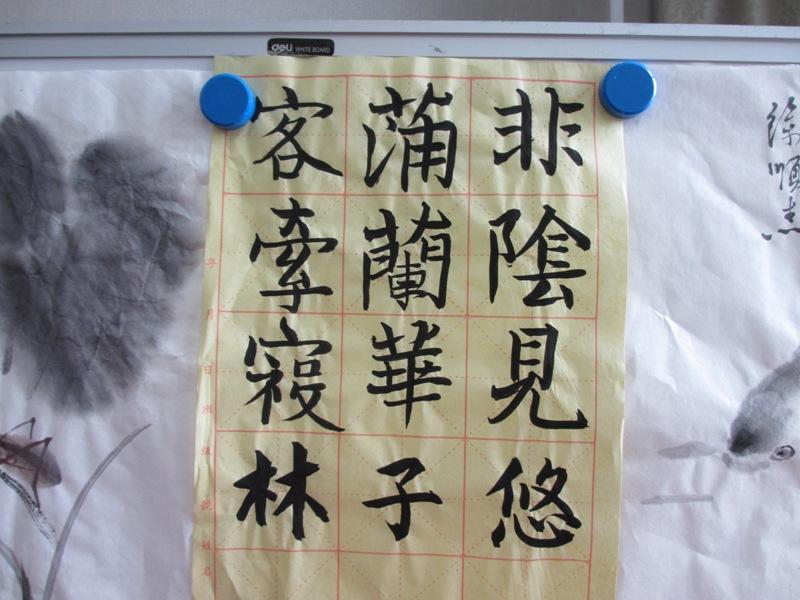 deli WHITE BOARD
非陰見悠
蒲蘭華子
客牽寢林
年月日班級 號 姓名
徐順